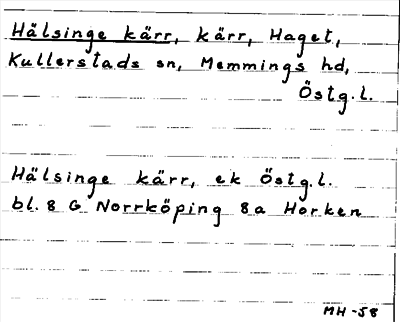 Hälsinge kärr, kärr, Haget,
Kullerstads sn, Memmings hd,
Östg.l.
Hälsinge kärr, ek Östg.l.
bl. 8 G Norrköping 8a Horken
MH -58